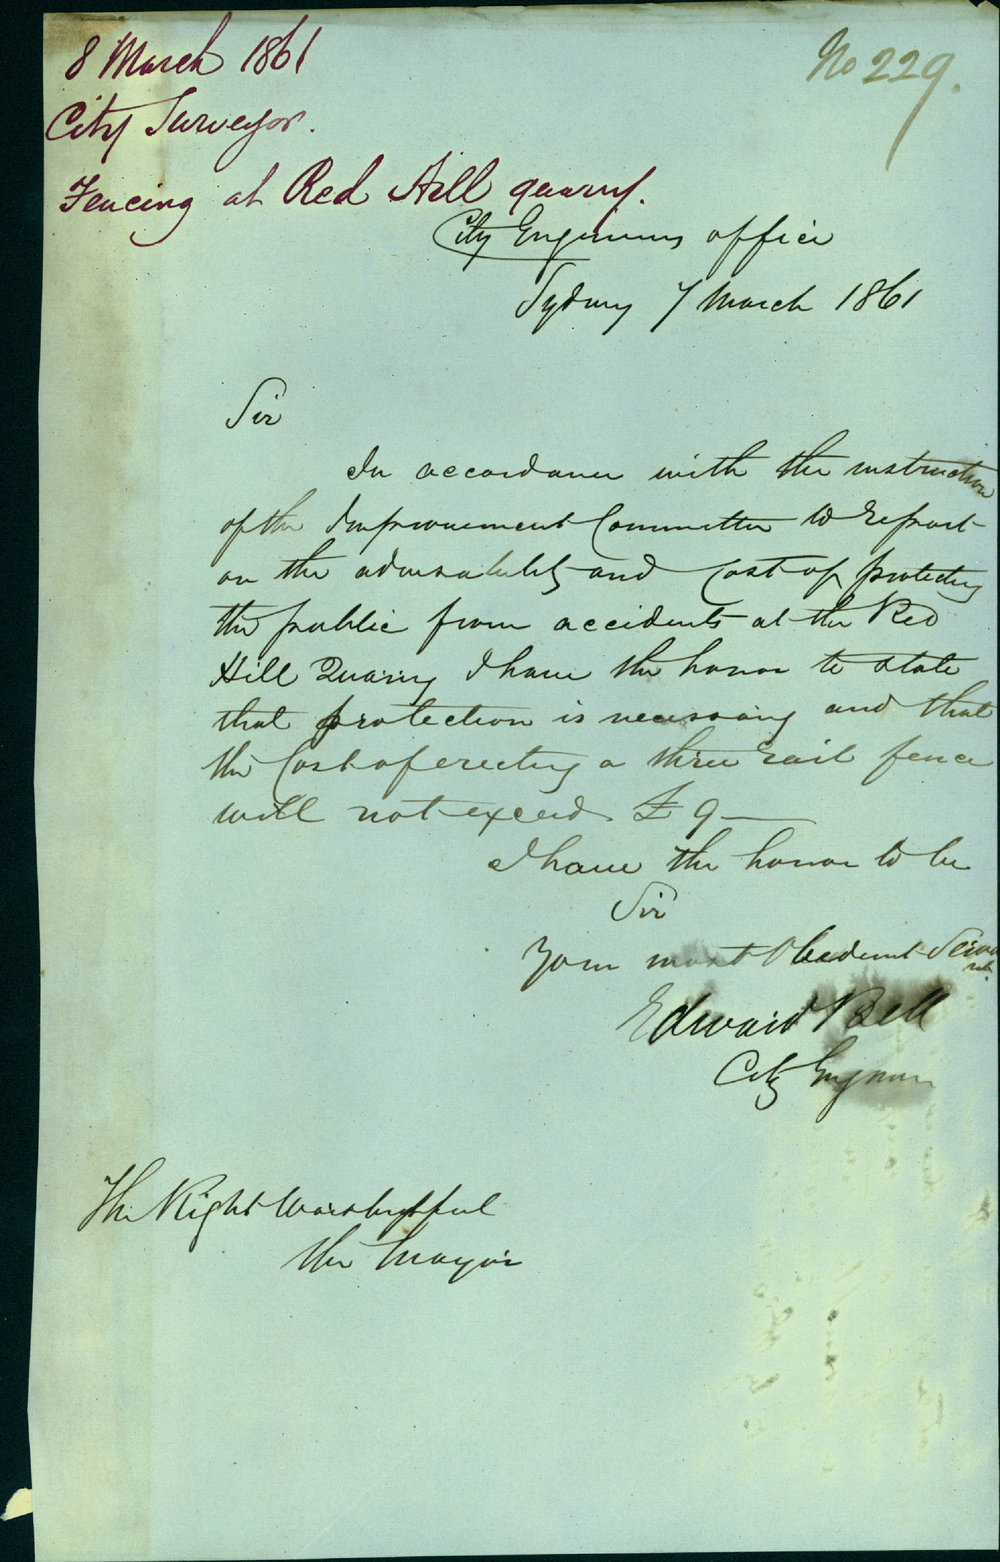 8 March 1861
City Surveyor.
Fencing at Red Hill quarry.
No 229.
City Engineers office
Sydney 7 March 1861
Sir
In accordance with the instruction
of the Improvement Committee to report
on the advisability and Cost of protecting
the public from accidents at the Red
Hill Quarry I have the honor to state
that protection is necessary and that
the Cost of erecting a three rail fence
will not exceed £9—
I have the honor to be
Sir
Your most Obedient Servant
Edward Bell
City Engineer
The Right Worshipful
the Mayor